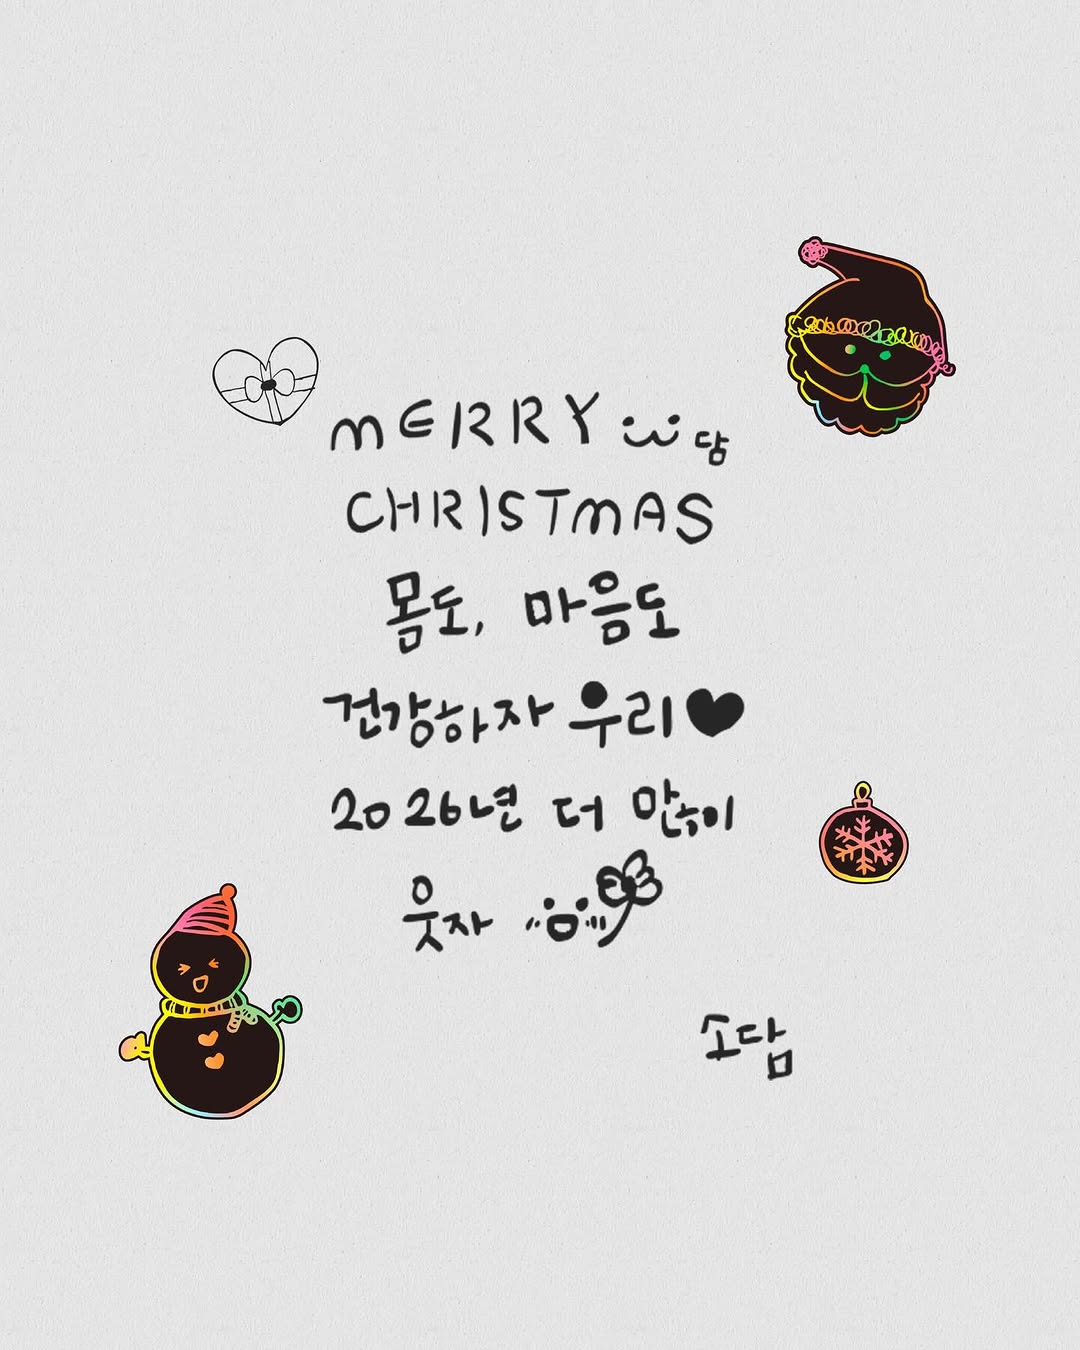 MERRY 담
CHRISTMAS
몸도, 마음도
건강하자 우리♥
2026년 더 많이
웃자
소담